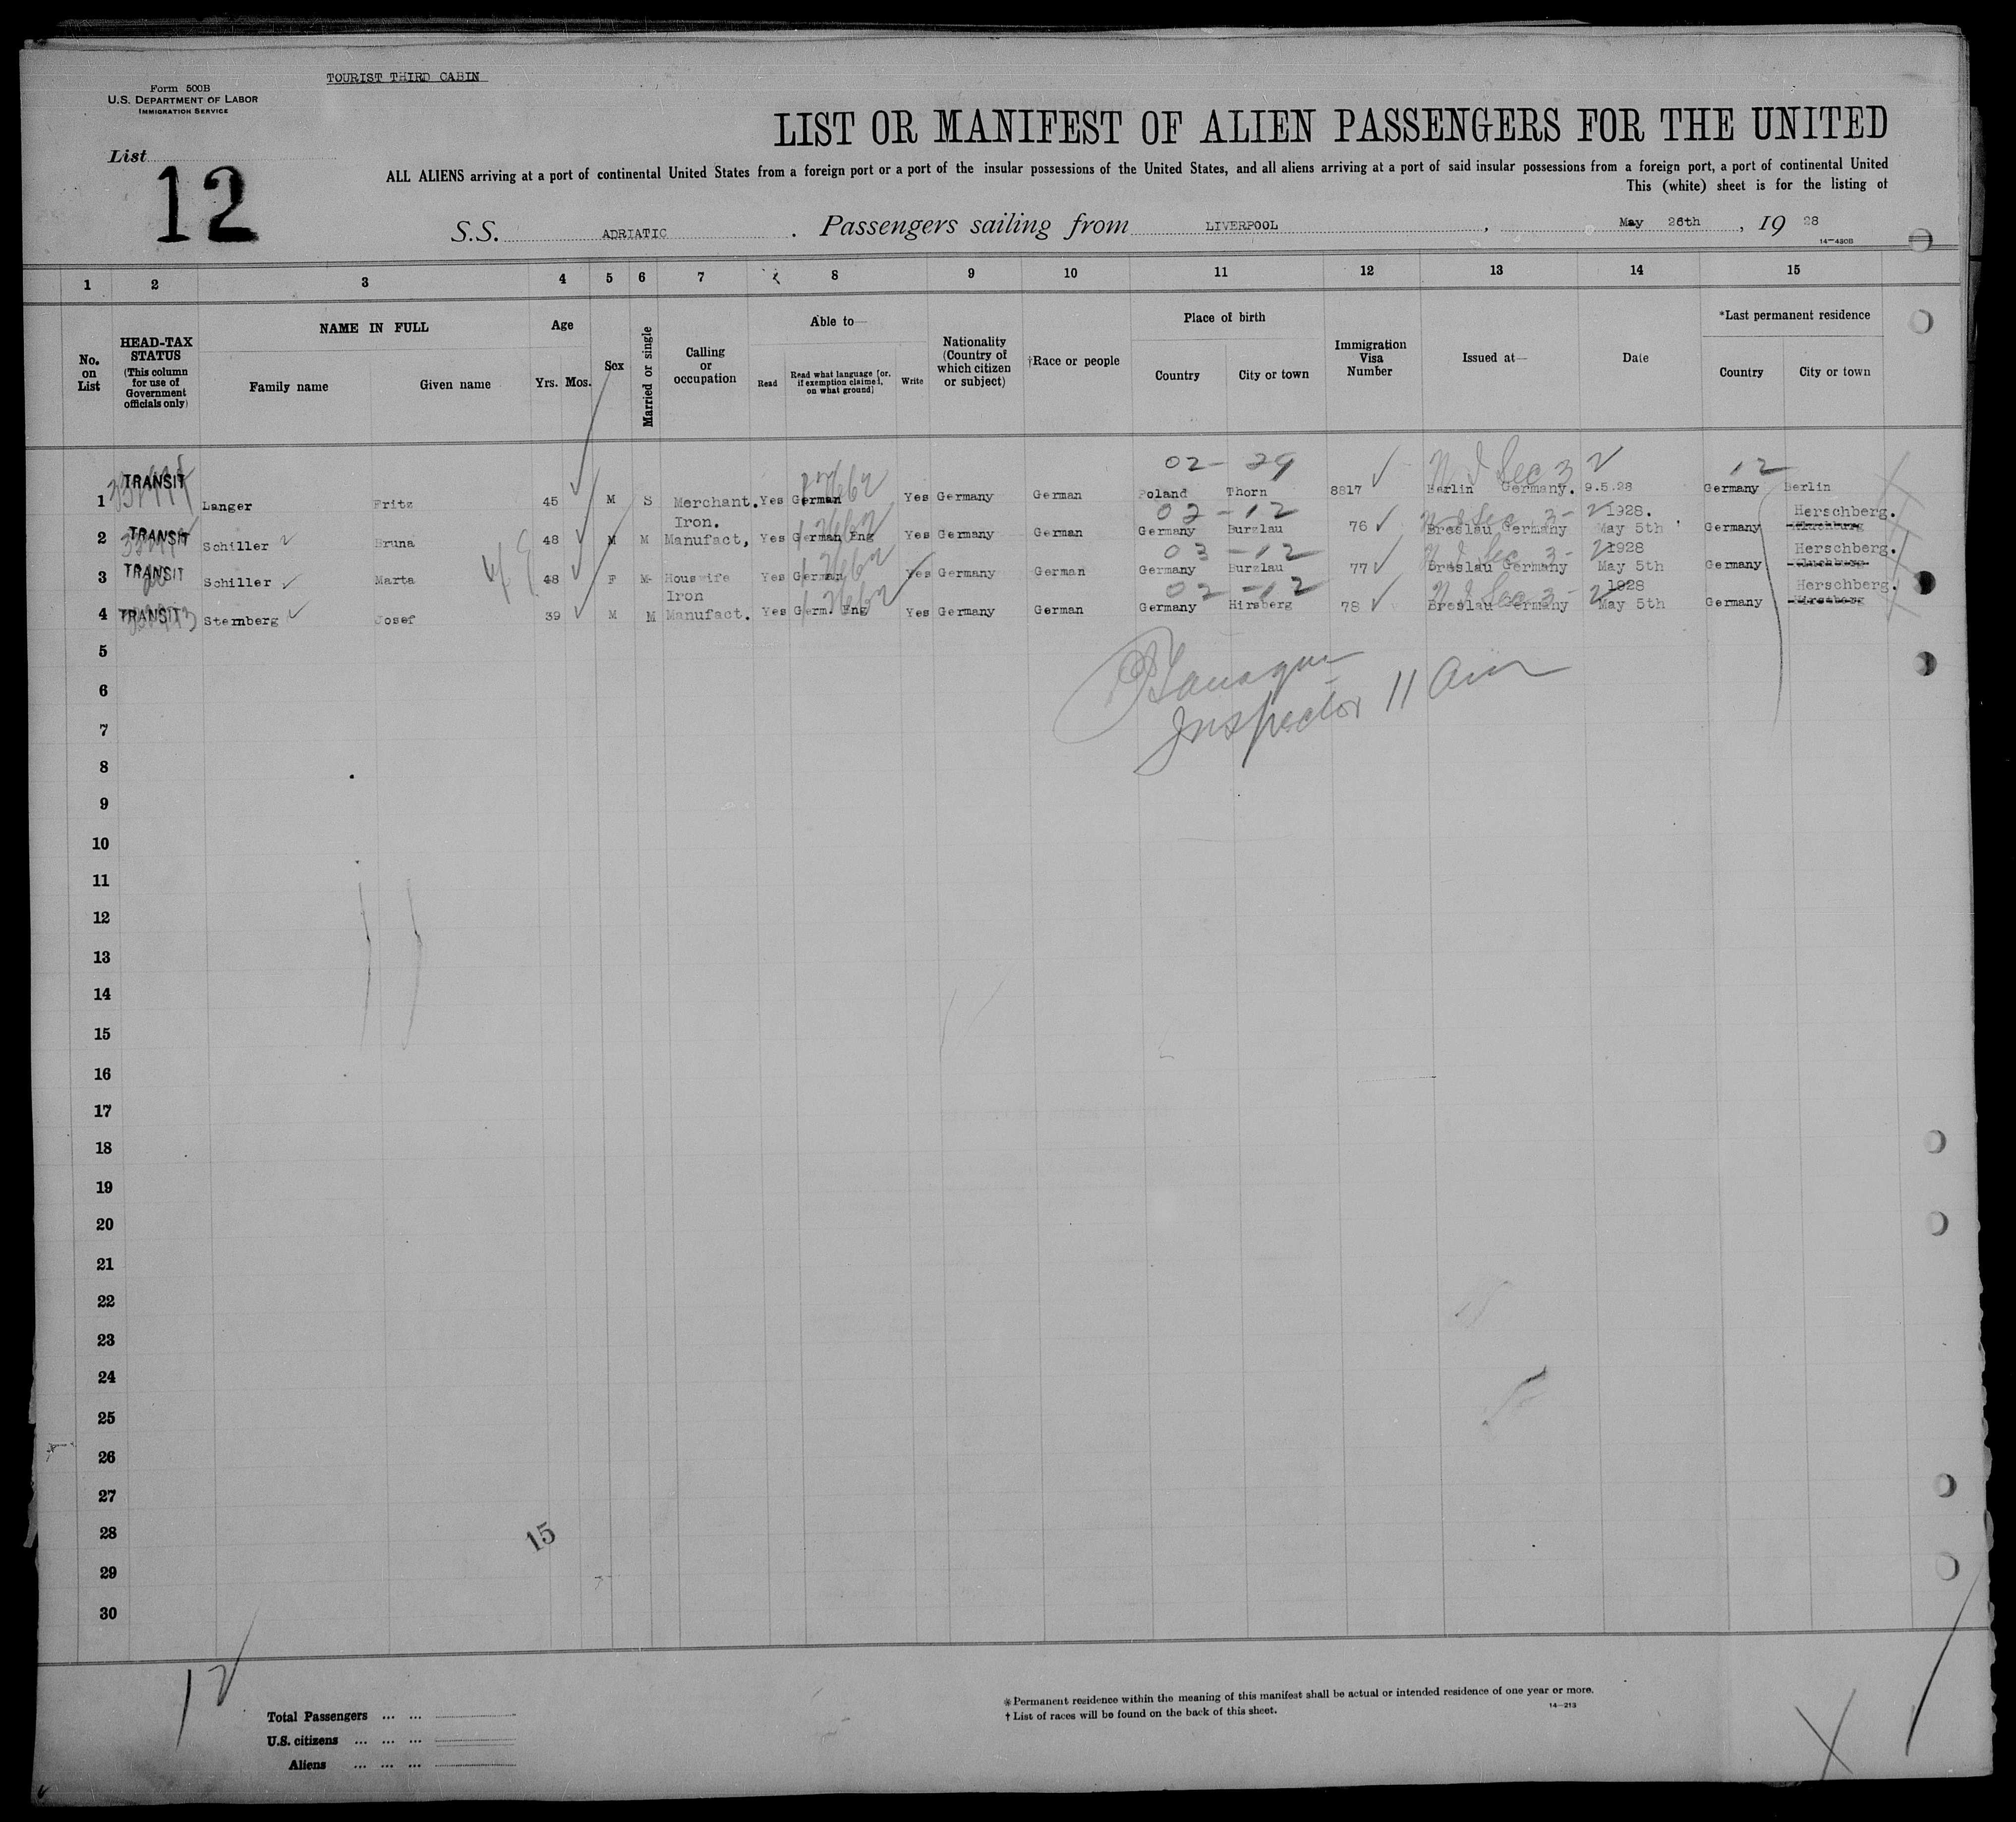 TOURIST THIRD CABIN
Form 500B
U.S. DEPARTMENT OF LABOR
IMMIGRATION SERVICE
List
12
LIST OR MANIFEST OF ALIEN PASSENGERS FOR THE UNITED
ALL ALIENS arriving at a port of continental United States from a foreign port or a port of the insular possessions of the United States, and all aliens arriving at a port of said insular possessions from a foreign port, a port of continental United
This (white) sheet is for the listing of
S.S. ADRIATIC. Passengers sailing from LIVERPOOL, May 26th, 19 28
14-430B
1 2 3 4 5 6 7 8 9 10 11 12 13 14 15
No. on List
HEAD-TAX STATUS (This column for use of Government officials only)
NAME IN FULL
Family name Given name
Age
Yrs. Mos.
Sex
Married or single
Calling or occupation
Able to—
Read
Read what language [or, if exemption claimed, on what ground]
Write
Nationality (Country of which citizen or subject)
†Race or people
Place of birth
Country City or town
Immigration Visa Number
Issued at—
Date
*Last permanent residence
Country City or town
02- 29 12
1 TRANSIT Langer Fritz 45 M S Merchant. Yes German Yes Germany German Poland Thorn 8817 Berlin Germany. 9.5.28 Germany Berlin
Iron. 02-12 1928. Herschberg.
2 TRANSIT Schiller Bruna 48 M M Manufact, Yes German Eng Yes Germany German Germany Burzlau 76 Breslau Germany May 5th Germany
03-12 1928 Herschberg.
3 TRANSIT Schiller Marta 48 F M Housewife Yes German Yes Germany German Germany Burzlau 77 Breslau Germany May 5th Germany
Iron 02-12 1928 Herschberg.
4 TRANSIT Sternberg Josef 39 M M Manufact. Yes Germ. Eng Yes Germany German Germany Hirsberg 78 Breslau Germany May 5th Germany
5
6
Inspector 11 am
7
8
9
10
11
12
13
14
15
16
17
18
19
20
21
22
23
24
25
26
27
28
15
29
30
12
Total Passengers ... ...
U.S. citizens ... ... ...
Aliens ... ... ...
*Permanent residence within the meaning of this manifest shall be actual or intended residence of one year or more.
† List of races will be found on the back of this sheet.
14-213